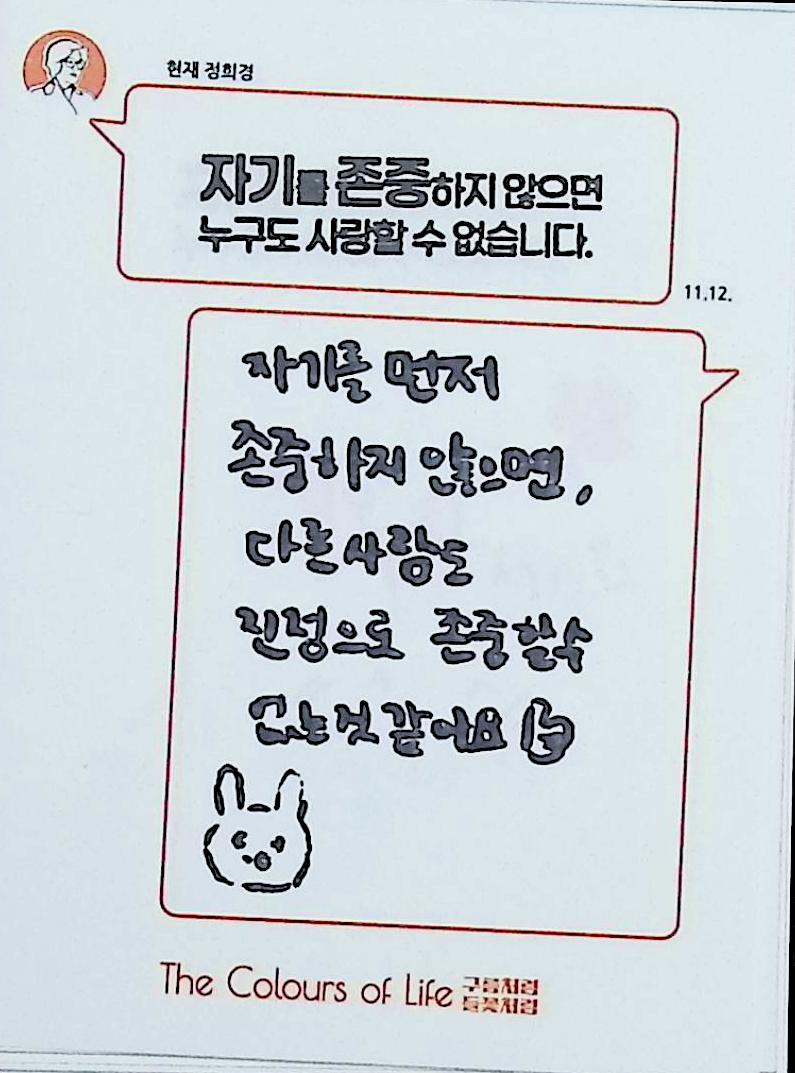 현재 정희경
자기를 존중하지 않으면
누구도 사랑할 수 없습니다.
11.12.
자기를 먼저
존중하지 않으면,
다른사람도
진정으로 존중할수
없는것 같아요
The Colours of Life
구름처럼
들꽃처럼